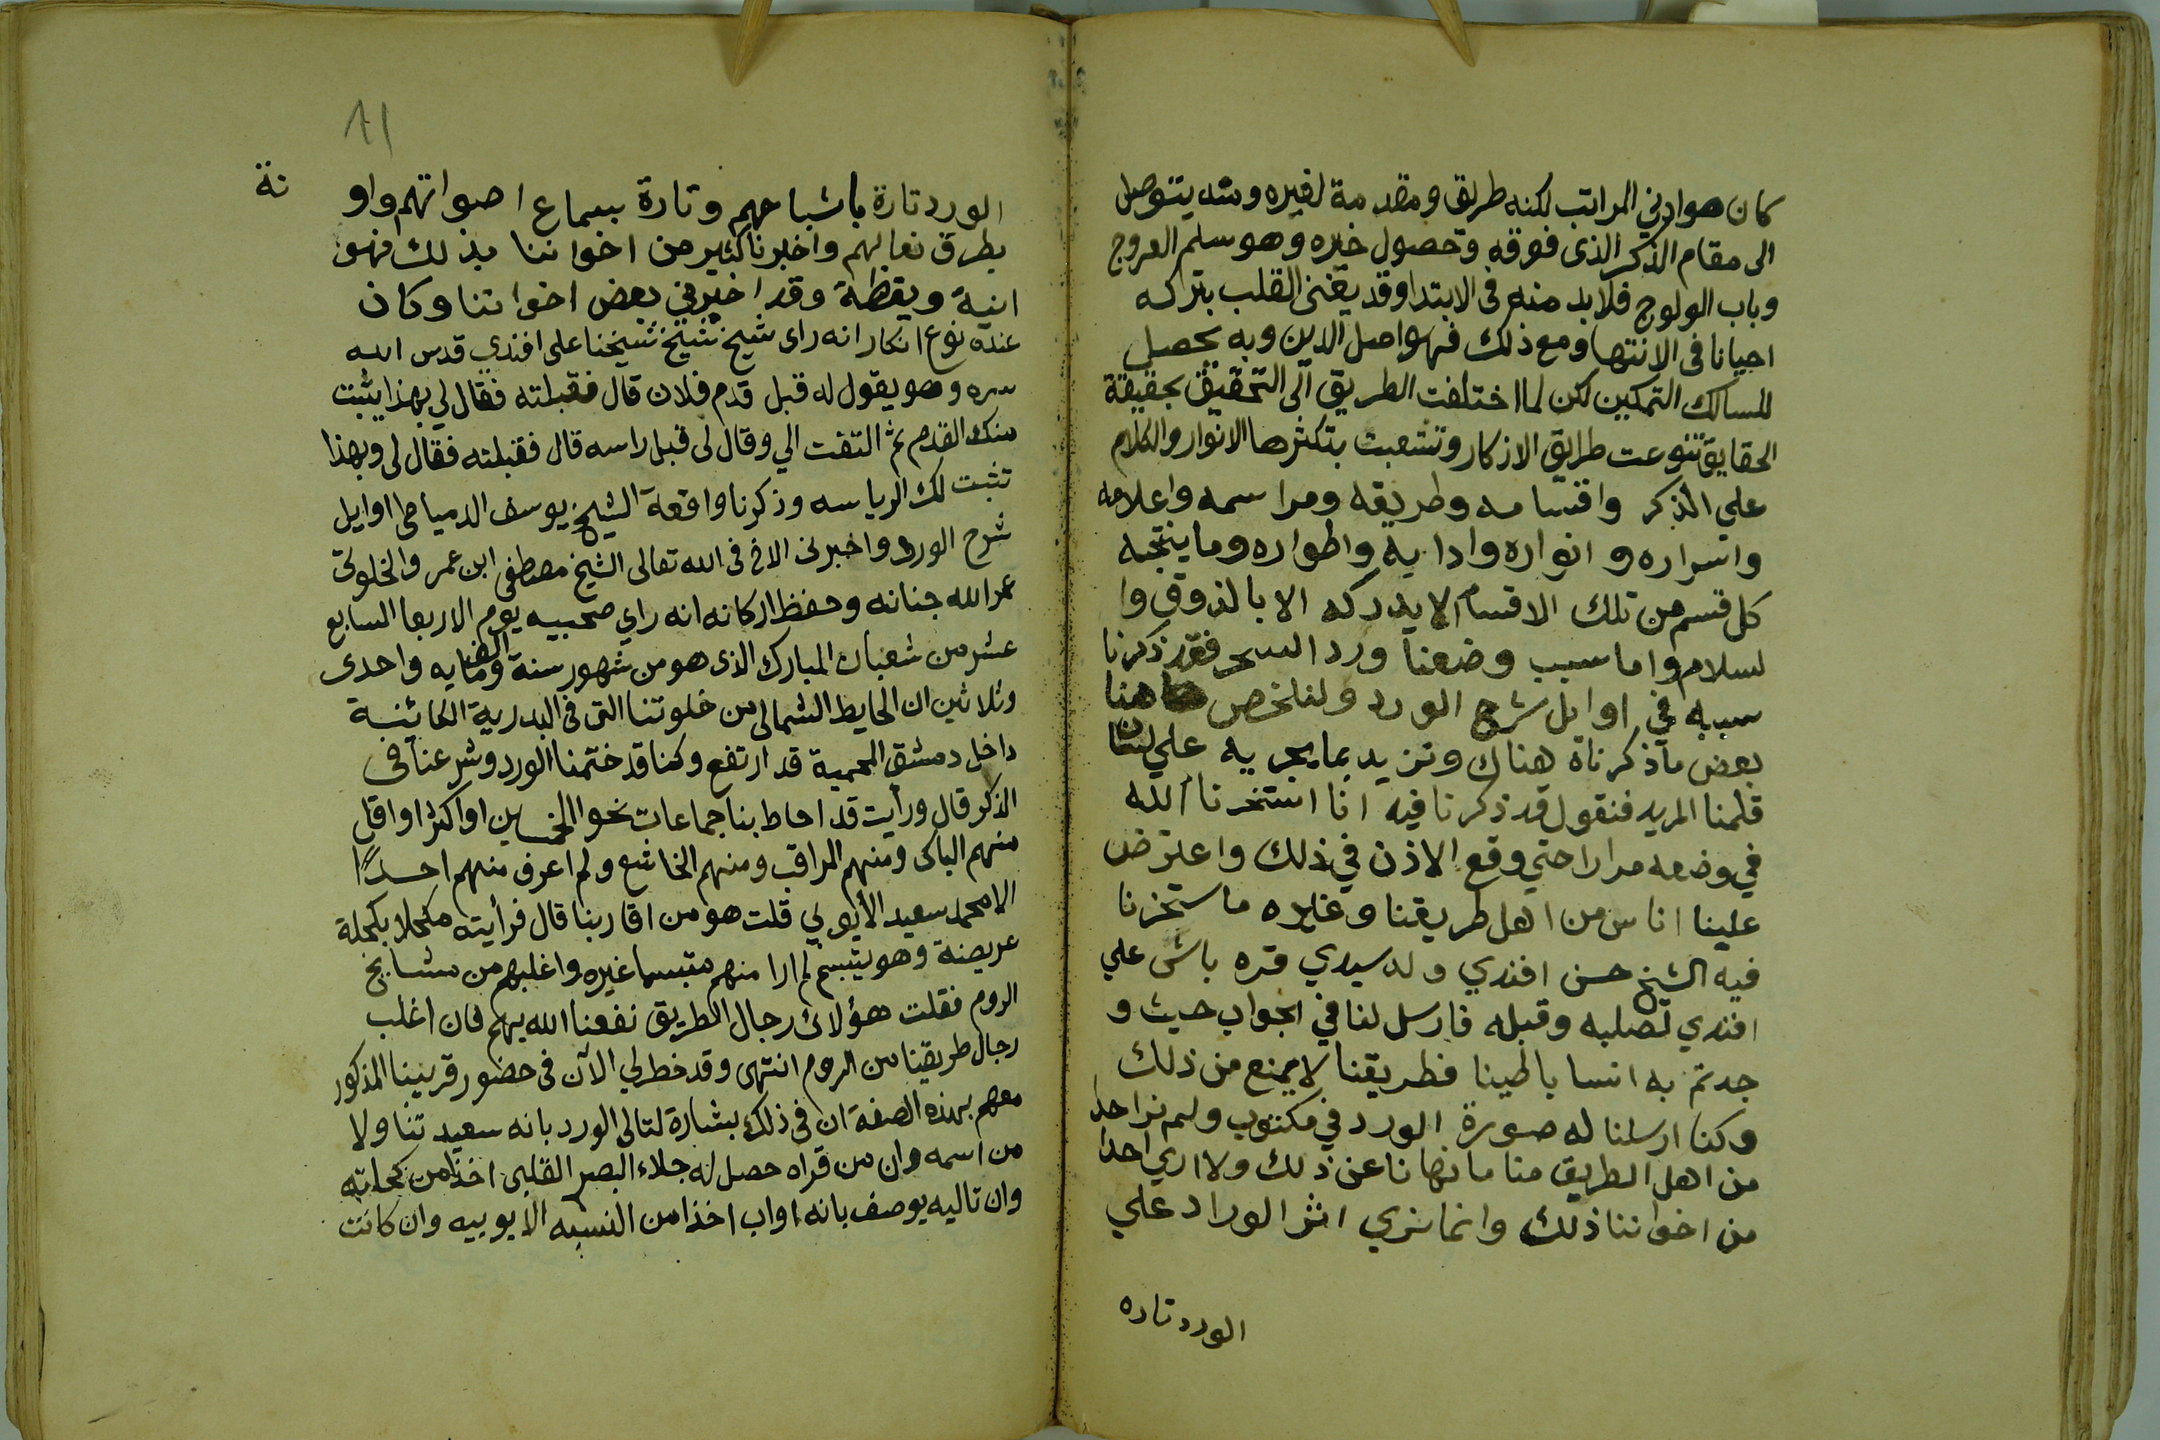 كان هو ادني المراتب لكنه طريق ومقدمة لغيره ومنه يتوصل
الى مقام الذكر الذى فوقه وتحصول خيره وهو سلم العروج
وباب الولوج فلابد منه فى الابتدا وقد يغنى القلب بتركه
احيانا فى الانتها ومع ذلك فهو اصل الدين وبه يحصل
للسالك التمكين لكن لما اختلفت الطريق الى التحقيق بحقيقة
الحقايق تنوعت طرايق الاذكار وتشعبت بتكثرها الانوار والكلام
علي الذكر واقسامه وطريقه ومراسمه واعلامه
واسراره و انواره وادابه واطواره وما ينتجه
كل قسم من تلك الاقسام لا يدركه الا بالذوق وا
لسلام واما سبب وضعنا ورد السحر فقد ذكرنا
سببه في اوايل شرح الورد ولنلخص هنا
بعض ما ذكرناه هناك ونزيد بما يجريه علي لسان
قلمنا المريد فنقول قد ذكرنا فيه انا استخرنا الله
في وضعه مرارا حتي وقع الاذن في ذلك واعترض
علينا اناس من اهل طريقنا وغيره ما ستخرنا
فيه الشيخ حسن افندي ولد سيدي قره باش علي
افندي لصلبه وقبله فارسل لنا في الجواب حيث و
جدتم به انسا باطينا فطريقنا لا يمنع من ذلك
وكنا ارسلنا له صورة الورد في مكتوب ولم نر احدا
من اهل الطريق منا ما نهانا عن ذلك ولا اري احدا
من اخواننا ذلك وانما نري اثر الوراد علي
الورد تاره
١٦
الورد تارة باشباحهم وتارة بسماع اصواتهم واو نة
بطرق نعالهم واخبرنا كثير من اخواننا بذلك فهو
انية ويقظة وقد اخبرني بعض اخواننا وكان
عنده نوع انكار انه راى شيخ شيخ شيخنا على افندي قدس الله
سره وهو يقول له قبل قدم فلان قال فقبلته فقال لي بهذا يثبت
منك القدم ثم التفت الي وقال لى قبل راسه قال فقبلته فقال لى وبهذا
تثبت لك الرياسه وذكرنا واقعة الشيخ يوسف الدمياطى اوايل
شرح الورد واخبرنى الاخ فى الله تعالى الشيخ مصطفى ابن عمر والخلوتى
عمر الله جنانه وحفظ اركانه انه راي صحبيه يوم الاربعا السابع
عشر من شعبان المبارك الذى هو من شهور سنة الف ومايه واحدى
وثلاثين ان الحايط الشمالى من خلوتنا التى فى البدرية الكائنة
داخل دمشق المحمية قد ارتفع وكنا قد ختمنا الورد وشرعنا فى
الذكر قال ورأيت قد احاط بنا جماعات نحو الخمسين او اكثر او اقل
منهم الباكى ومنهم المراقب ومنهم الخاشع ولم اعرف منهم احدًا
الا محمد سعيد الأيوبي قلت هو من اقاربنا قال فرأيته مكحلا بكحلة
عريضة وهو يتبسم لم ارا منهم متبسما غيره واغلبهم من مشايخ
الروم فقلت هؤلائ رجال الطريق نفعنا الله بهم فان اغلب
رجال طريقنا من الروم انتهى وقد خطر لي الآن فى حضور قريبنا المذكور
معهم بهذه الصفة ان فى ذلك بشارة لتالى الورد بانه سعيد تناولا
من اسمه وان من قراه حصل له جلاء البصر القلبى اخذا من كحلته
وان تاليه يوصف بانه اواب اخذا من النسبه الايوبيه وان كانت